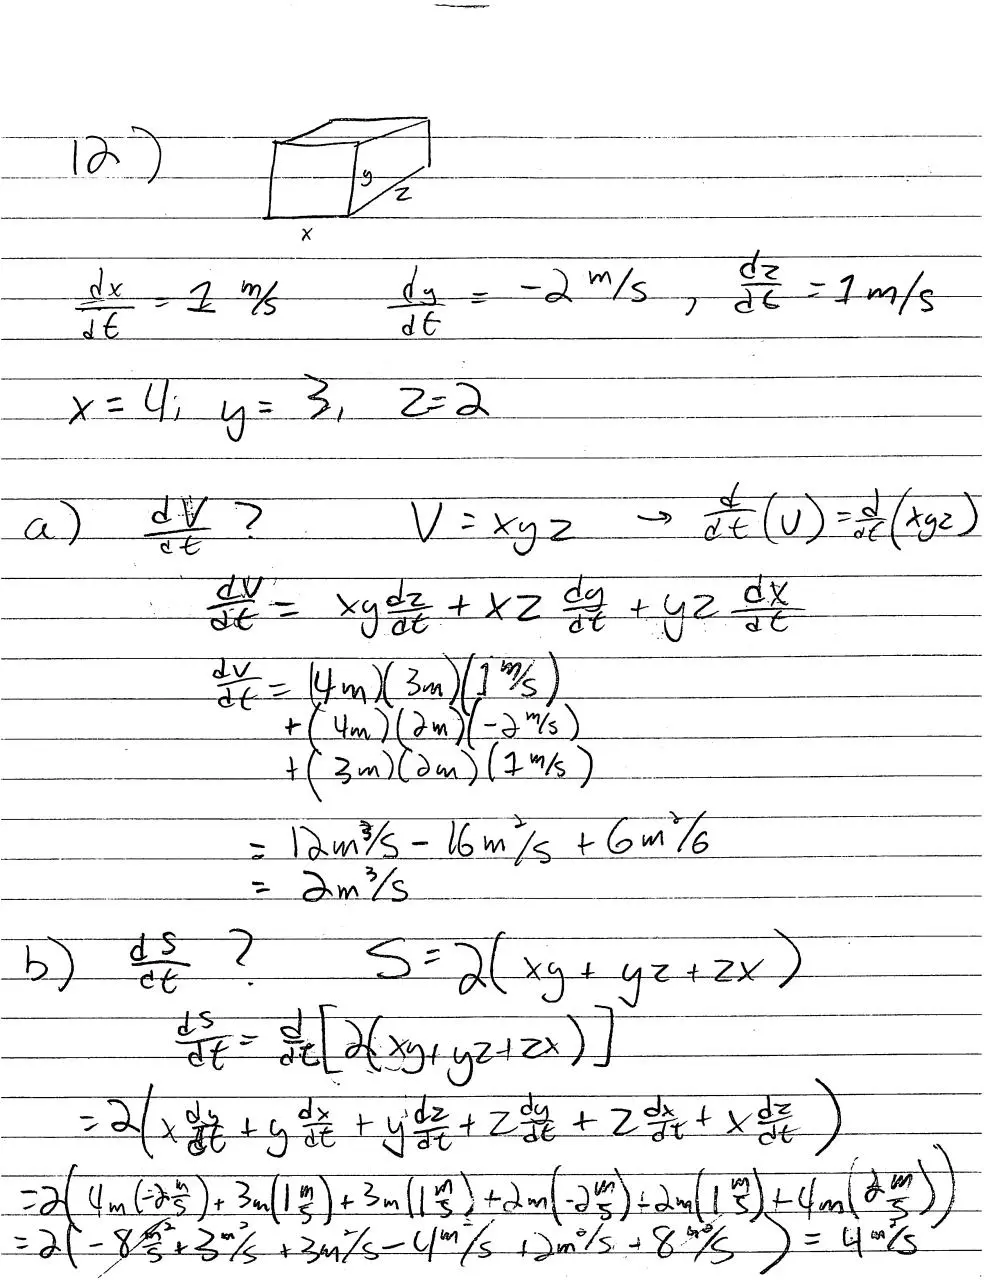 12)
y
z
x
dx/dt = 1 m/s dy/dt = -2 m/s, dz/dt = 1 m/s
x = 4, y = 3, z = 2
a) dV/dt ? V = xyz → d/dt (V) = d/dt (xyz)
dV/dt = xy dz/dt + xz dy/dt + yz dx/dt
dV/dt = (4m)(3m)(1 m/s)
+ (4m)(2m)(-2 m/s)
+ (3m)(2m)(1 m/s)
= 12m³/s - 16m²/s + 6m²/6
= 2m³/s
b) dS/dt ? S = 2(xy + yz + zx)
dS/dt = d/dt [2(xy + yz + zx)]
= 2(x dy/dt + y dx/dt + y dz/dt + z dy/dt + z dx/dt + x dz/dt)
= 2(4m(-2 m/s) + 3m(1 m/s) + 3m(1 m/s) + 2m(-2 m/s) + 2m(1 m/s) + 4m(2 m/s))
= 2(-8 m²/s + 3m²/s + 3m²/s - 4m²/s + 2m²/s + 8m²/s) = 4m²/s